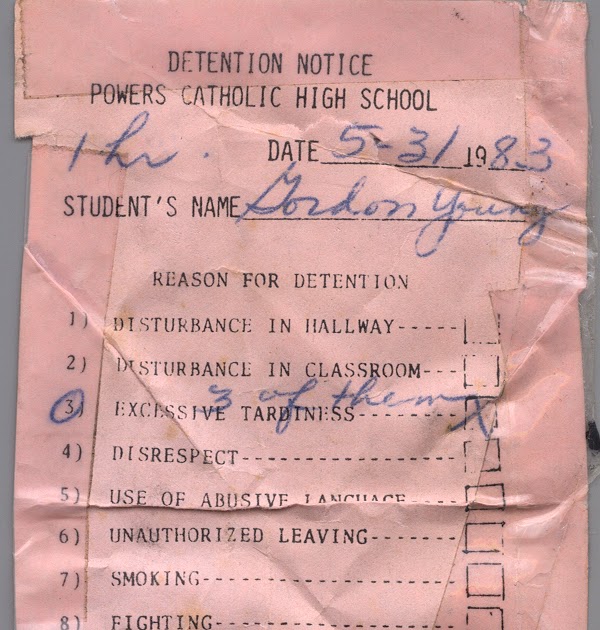 DETENTION NOTICE
POWERS CATHOLIC HIGH SCHOOL
1 hr. DATE 5-31 1983
STUDENT'S NAME Gordon Young
REASON FOR DETENTION
1) DISTURBANCE IN HALLWAY-----
2) DISTURBANCE IN CLASSROOM---
3 of them X
3) EXCESSIVE TARDINESS--------
4) DISRESPECT-----------------
5) USE OF ABUSIVE LANGUAGE----
6) UNAUTHORIZED LEAVING-------
7) SMOKING--------------------
8) FIGHTING-------------------